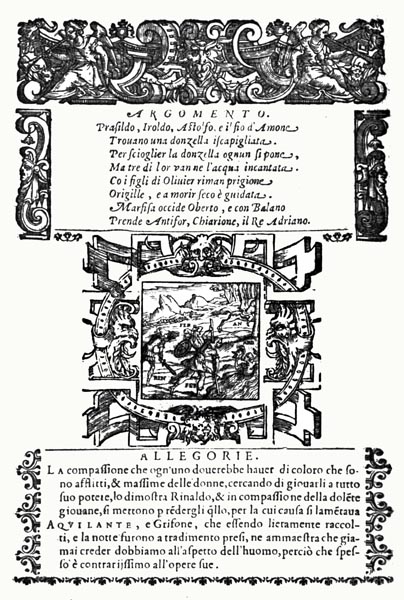 ARGOMENTO.
Prasildo, Iroldo, Astolfo. e i'fio d'Amone
Trouano una donzella iscapigliata.
Per scioglier la donzella ognun si pone,
Ma tre di lor van ne l'acqua incantata.
Co i figli di Oliuier riman prigione
Origille, e a morir seco è guidata.
Marfisa occide Oberto, e con Balano
Prende Antifor, Chiarione, il Re Adriano.
ALLEGORIE.
LA compassione che ogn'uno douerebbe hauer di coloro che so-
no afflitti, & massime delle donne, cercando di giouarli a tutto
suo potere, lo dimostra Rinaldo, & in compassione della dolẽte
giouane, si mettono p rẽdergli q̃llo, per la cui causa si lamẽtaua
AQVILANTE, e Grifone, che essendo lietamente raccol-
ti, e la notte furono a tradimento presi, ne ammaestra che gia-
mai creder dobbiamo all'aspetto dell'huomo, perciò che spes-
so è contrarijssimo all'opere sue.